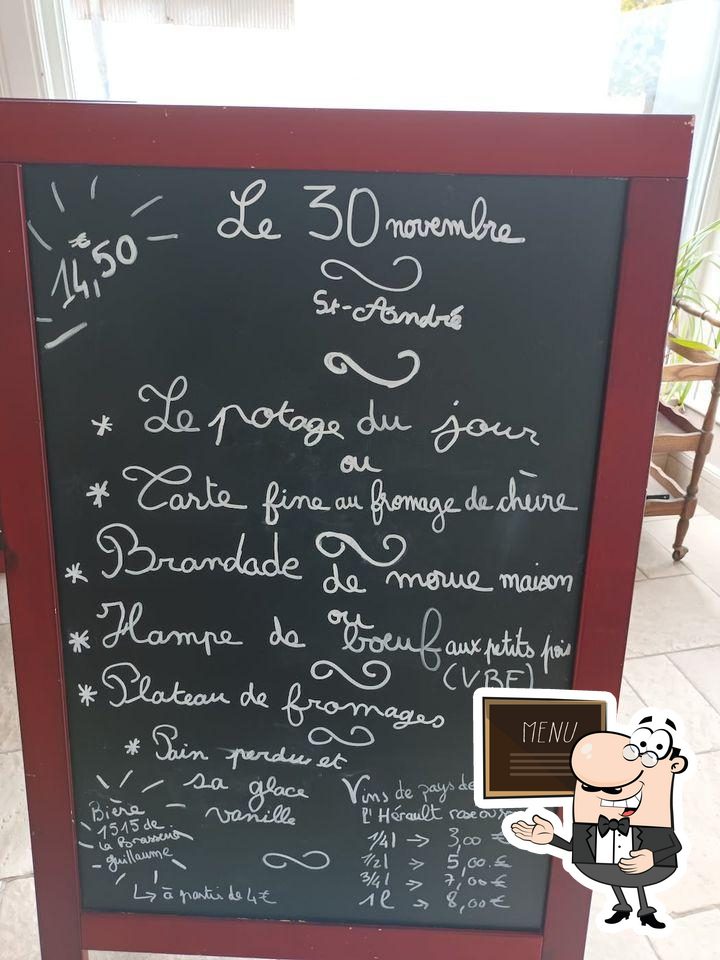 Le 30 novembre
14,50 €
St-André
* Le potage du jour
ou
* Tarte fine au fromage de chèvre
* Brandade de morue maison
ou
* Hampe de boeuf aux petits pois
(VBF)
* Plateau de fromages
* Pain perdu et
sa glace
vanille
Bière
1515 de
la Brasserie
guillaume
↳ à partir de 4€
Vins de pays de
l'Hérault rosé ou
1/4l → 3,00 €
1/2l → 5,00 €
3/4l → 7,00 €
1l → 8,00 €
MENU